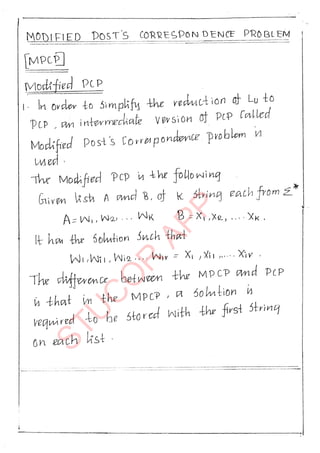 MODIFIED POST'S CORRESPONDENCE PROBLEM
[MPCP]
Modified PCP
1. In order to simplify the reduction of Lu to
PCP, an intermediate version of PCP called
Modified Post's Correspondence problem is
used.
The Modified PCP is the following
Given lists A and B, of K string each from Σ*
A = W1, W2, ... WK B = X1, X2, .... XK.
It has the Solution Such that
W1, Wi1, Wi2 .... Wir = X1, Xi1, ..... Xir.
The difference between the MPCP and PCP
is that in the MPCP, a Solution is
required to be Stored with the first String
on each list.
STUCOR APP